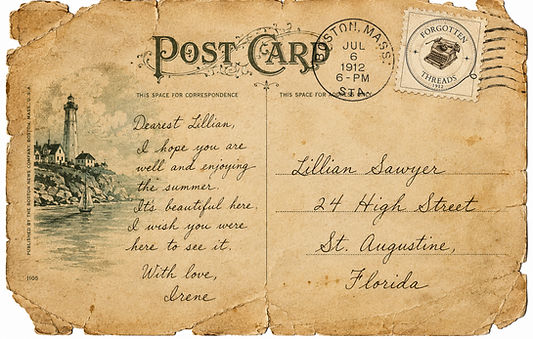 POST CARD
BOSTON, MASS.
JUL
6
1912
6-PM
STA.
FORGOTTEN
THREADS
1912
THIS SPACE FOR CORRESPONDENCE
THIS SPACE FOR ADDRESS ONLY
Dearest Lillian,
I hope you are
well and enjoying
the summer.
Its beautiful here.
I wish you were
here to see it.
With love,
Irene
Lillian Sawyer
24 High Street
St. Augustine,
Florida
PUBLISHED BY THE BOSTON NEWS COMPANY, BOSTON, MASS., U.S.A.